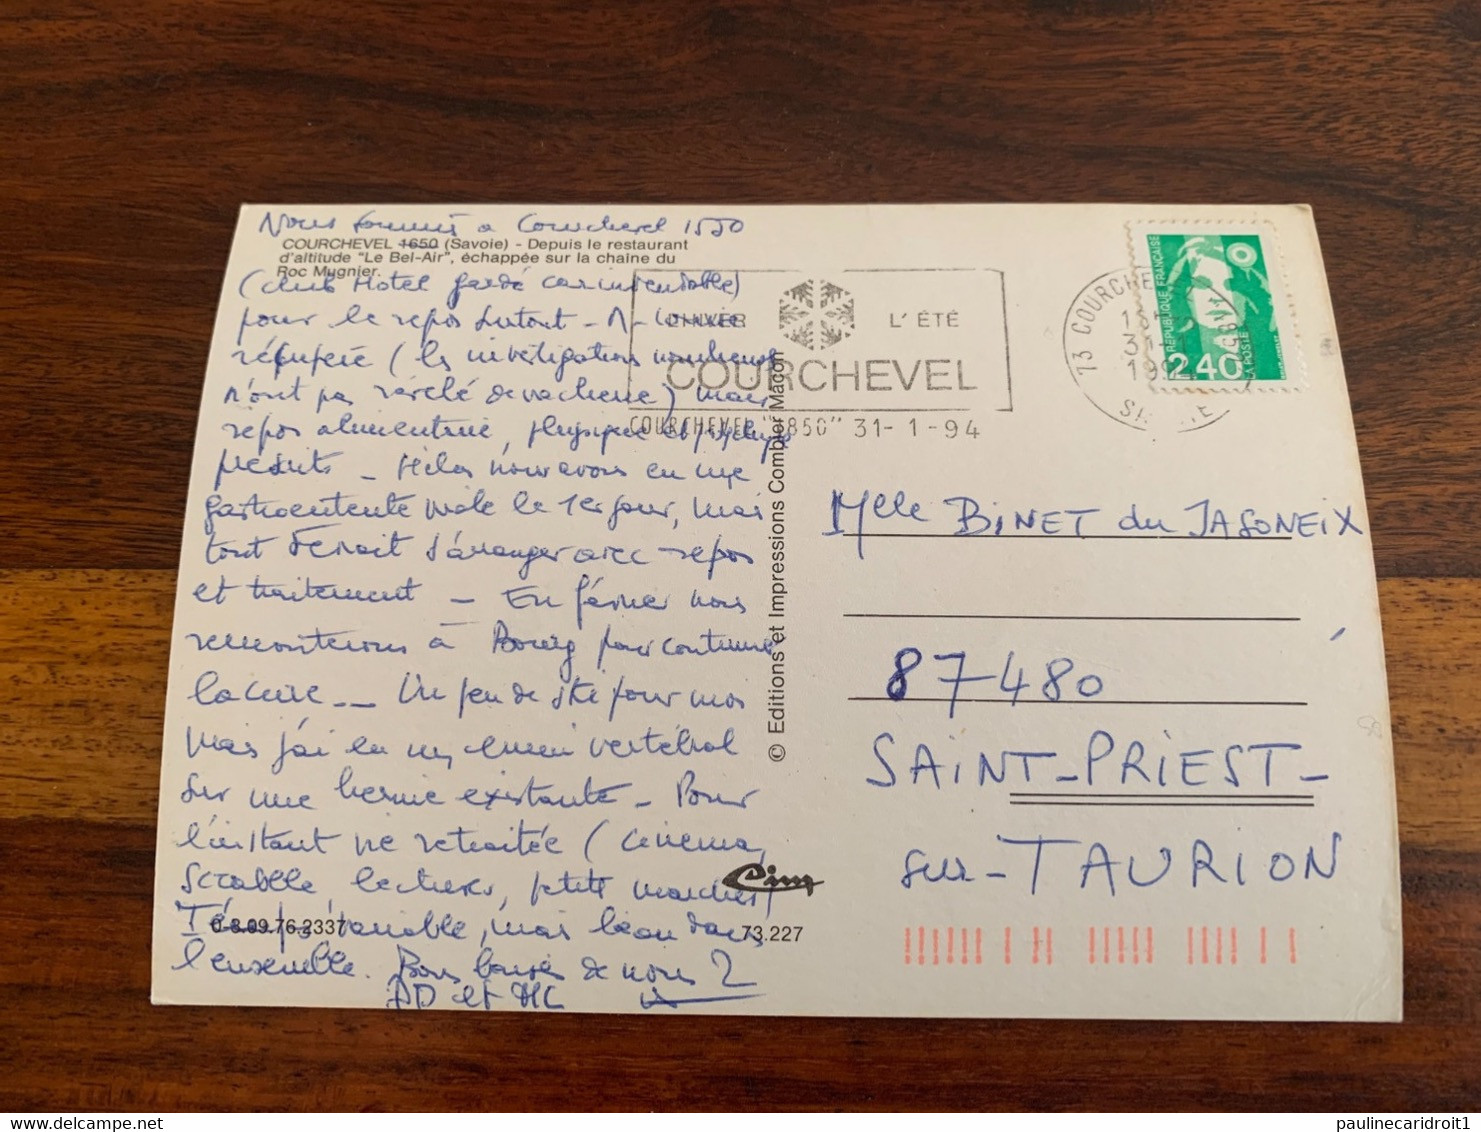 Nous sommes a Courchevel 1550
COURCHEVEL 1650 (Savoie) - Depuis le restaurant
d'altitude "Le Bel-Air", échappée sur la chaîne du
Roc Mugnier.
(club Hotel gardé)
pour le repos surtout -
récupère (les investigations
n'ont pas ) mais
repos alimentaire, physique et
prédits - Hélas nous avons eu une
gastroentérite le 1er jour, mais
tout devrait s'arranger avec repos
et traitement - En février nous
remonterons à Bourg pour continuer
la cure -- Un peu de ski pour nos
mais j'ai eu un ennui vertébral
sur une hernie existante - Pour
l'instant vie retraitée (cinéma,
scrabble lectures, petites marches)
Temps variable, mais beau dans
l'ensemble. Bons baisers de nous 2
PD et MC
0-8.09.76.2337
73.227
Cim
© Editions et Impressions Combier Mâcon
L'HIVER
L'ÉTÉ
COURCHEVEL
COURCHEVEL "1850" 31-1-94
73 COURCHEVEL
SAVOIE
REPUBLIQUE FRANÇAISE
2,40
LA POSTE
Melle BINET du JASONEIX
87480
SAINT-PRIEST-
sur-TAURION
paulinecaridroit1